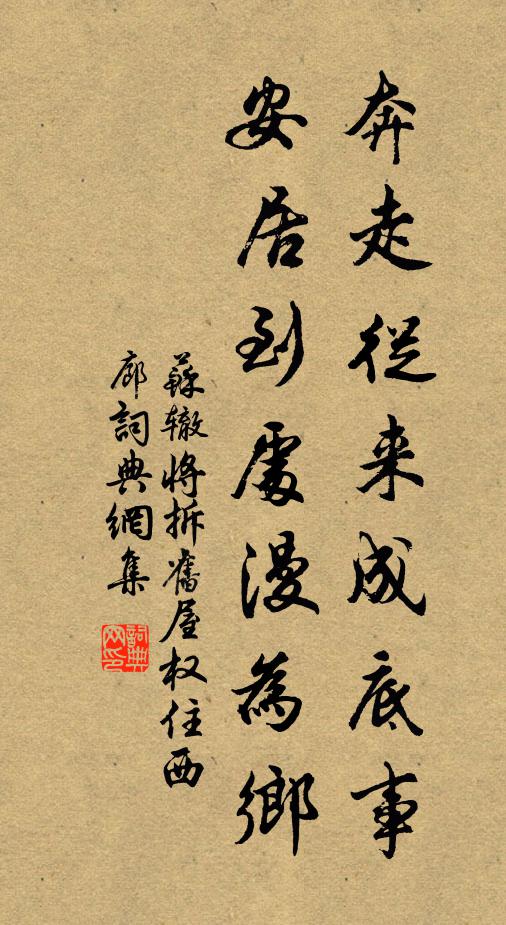 奔走從来成底事
安居到處漫為鄉
蘇辙將拆舊屋权住西
廊詞典網集
詞典
网印